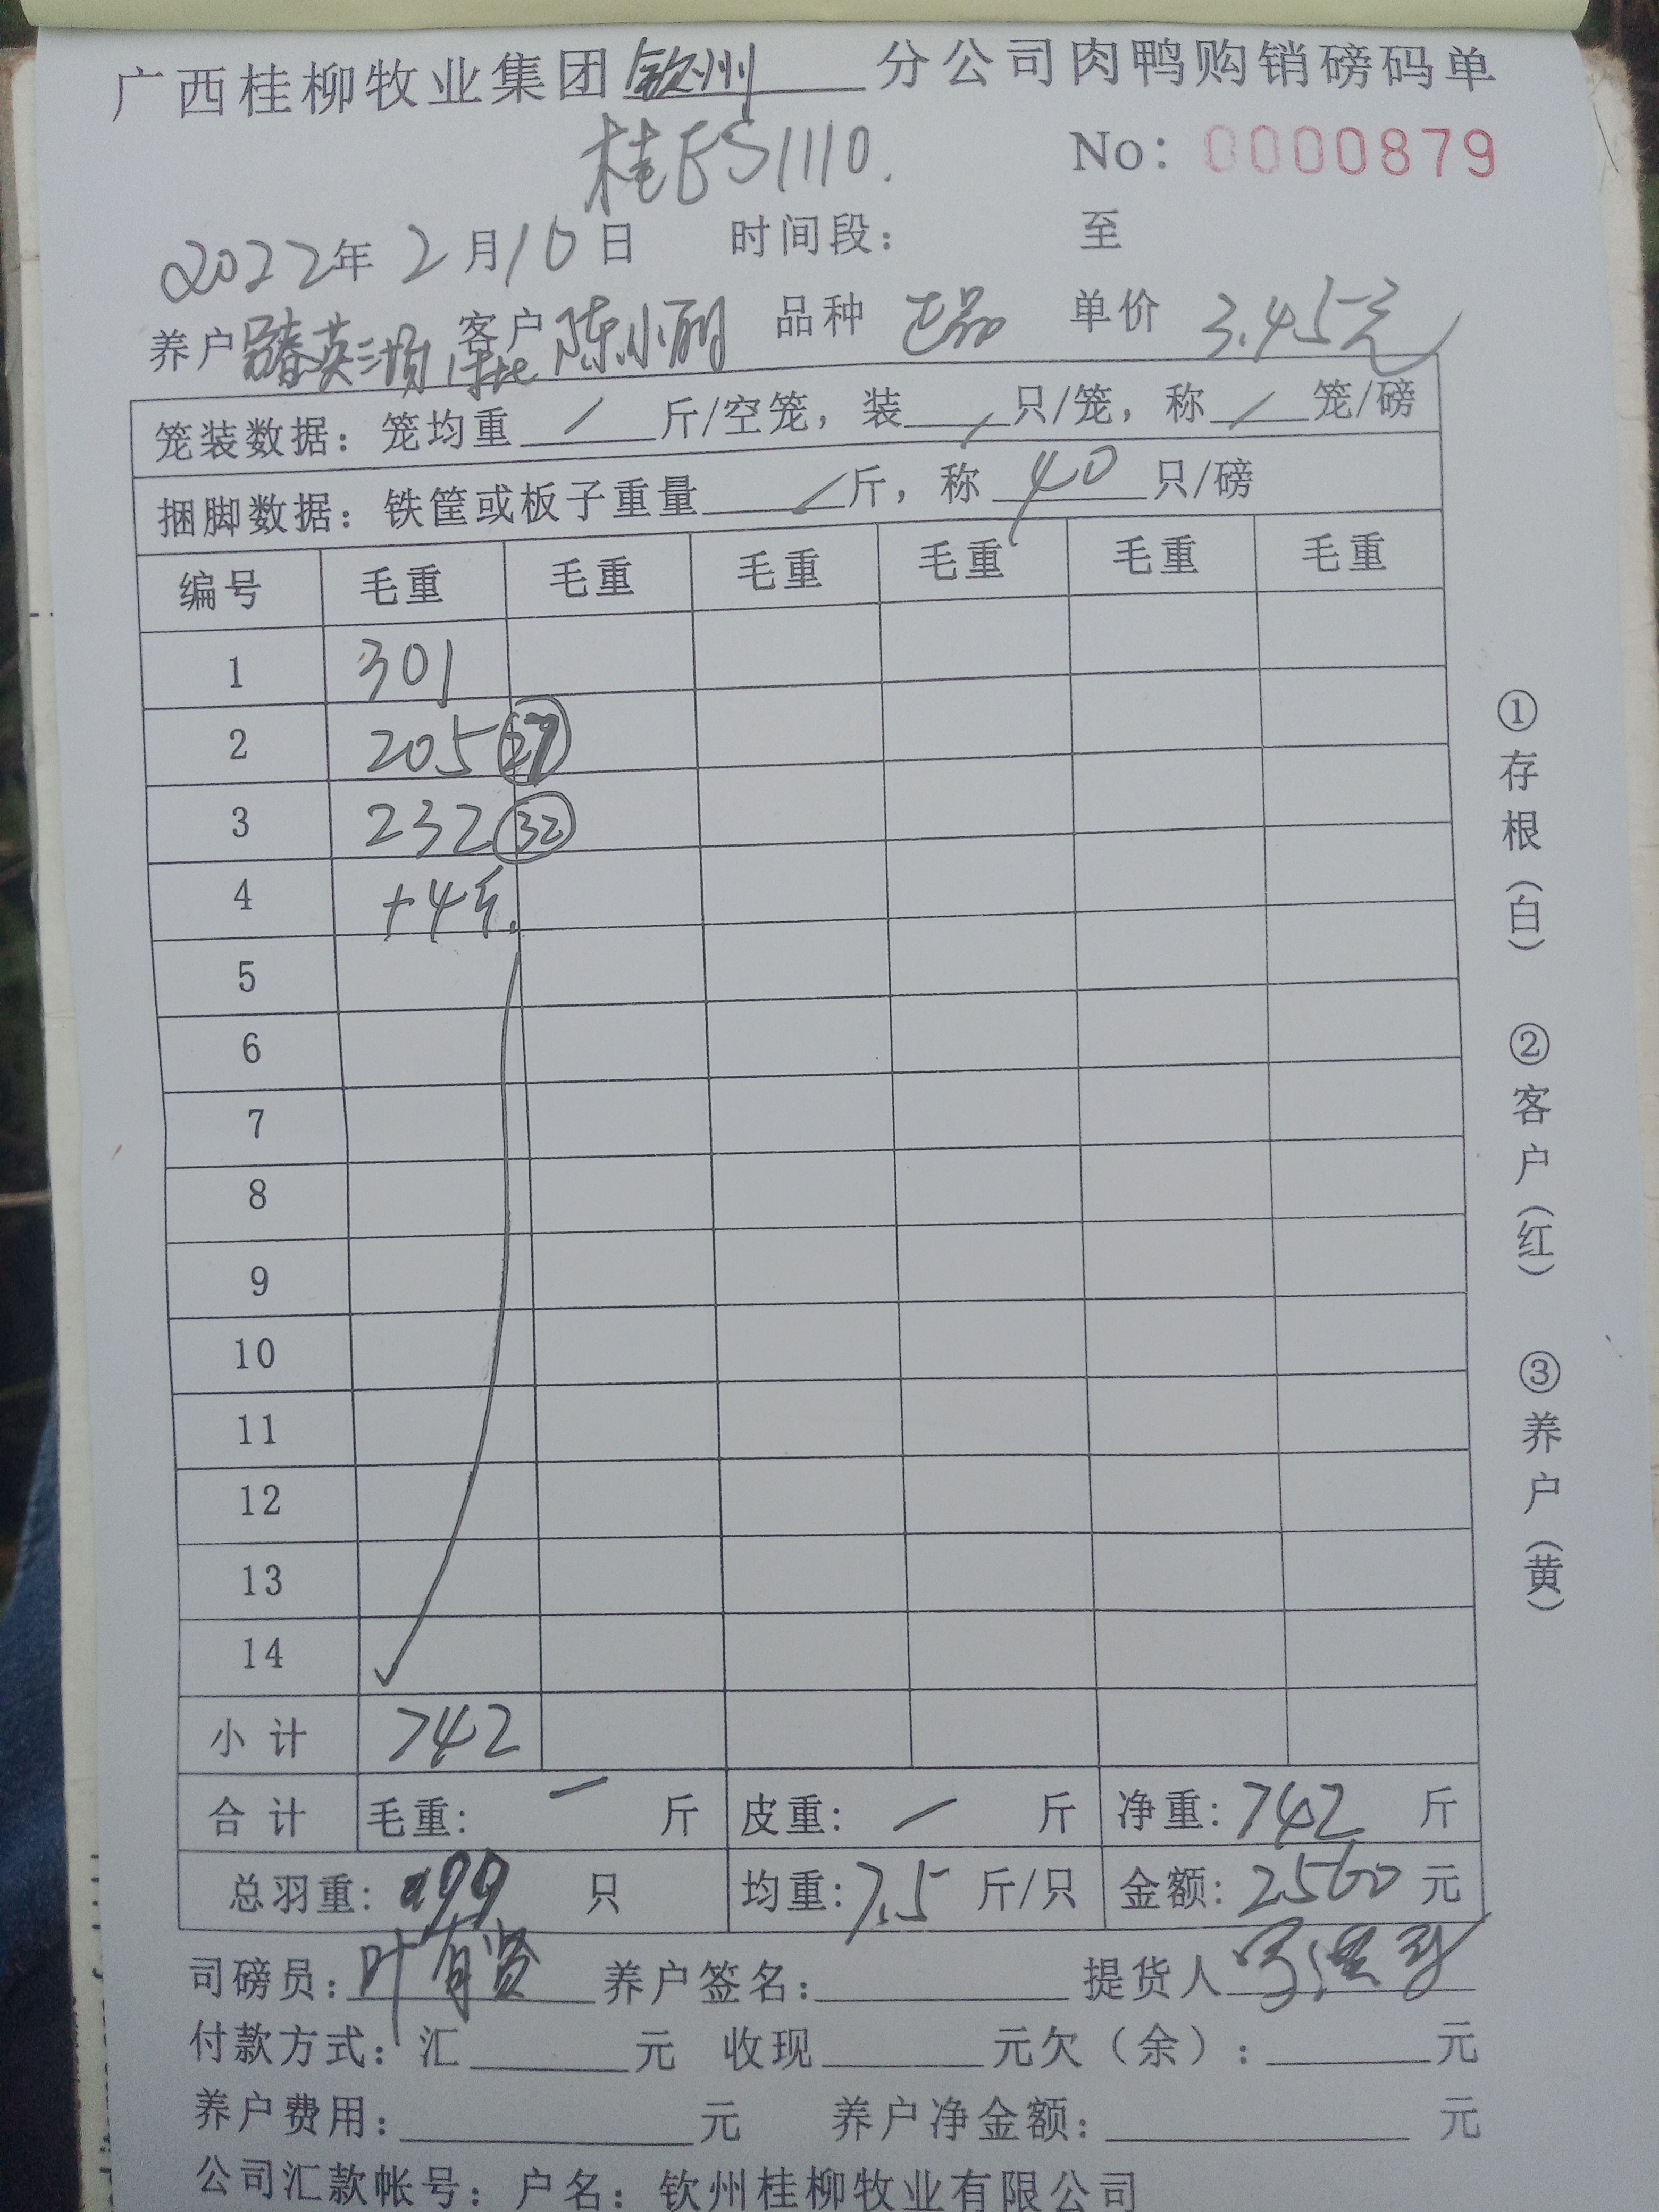 广西桂柳牧业集团钦州分公司肉鸭购销磅码单
桂ES1110.
No: 0000879
2022年2月10日 时间段: 至
养户 英三场 客户 陈小丽 品种 正品 单价 3.45元
笼装数据: 笼均重 / 斤/空笼, 装 / 只/笼, 称 / 笼/磅
捆脚数据: 铁筐或板子重量 / 斤, 称 40 只/磅
编号 毛重 毛重 毛重 毛重 毛重 毛重
1 301
2 205 27
3 232 32
4 +4斤.
5
6
7
8
9
10
11
12
13
14
小计 742
合计 毛重: — 斤 皮重: — 斤 净重: 742 斤
总羽重: 99 只 均重: 7.5 斤/只 金额: 2560 元
司磅员: 叶有贤 养户签名: 提货人
付款方式: 汇 元 收现 元欠(余): 元
养户费用: 元 养户净金额: 元
公司汇款帐号: 户名: 钦州桂柳牧业有限公司
①存根(白) ②客户(红) ③养户(黄)